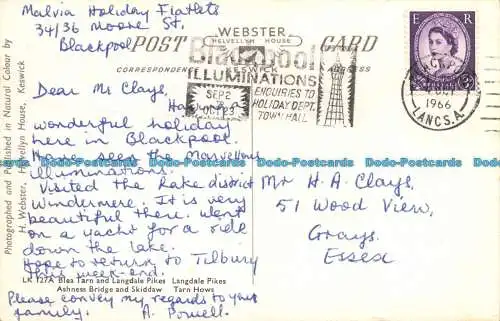 Malvia Holiday Flatlets
34/36 Moore St.
Blackpool
POST CARD
WEBSTER
HELVELLYN HOUSE
KESWICK
CORRESPONDENCE
ADDRESS
Blackpool
ILLUMINATIONS
SEP2
OCT23
ENQUIRIES TO
HOLIDAY DEPT.
TOWN HALL
E R
1966
LANCS.A.
Dear Mr Clays,
Having a
wonderful holiday
here in Blackpool.
Have seen the Marvellous
illuminations.
Visited the Lake district
Windermere. It is very
beautiful there. Went
on a yacht for a ride
down the lake.
Hope to return to Tilbury
this week-end.
Please convey my regards to your
family. A. Powell.
Mr H. A. Clays,
51 Wood View,
Grays.
Essex
LK 127A Blea Tarn and Langdale Pikes Langdale Pikes
Ashness Bridge and Skiddaw Tarn Hows
Photographed and Published in Natural Colour by
H. Webster, Helvellyn House, Keswick
Dodo-Postcards Dodo-Postcards Dodo-Postcards Dodo-Postcards